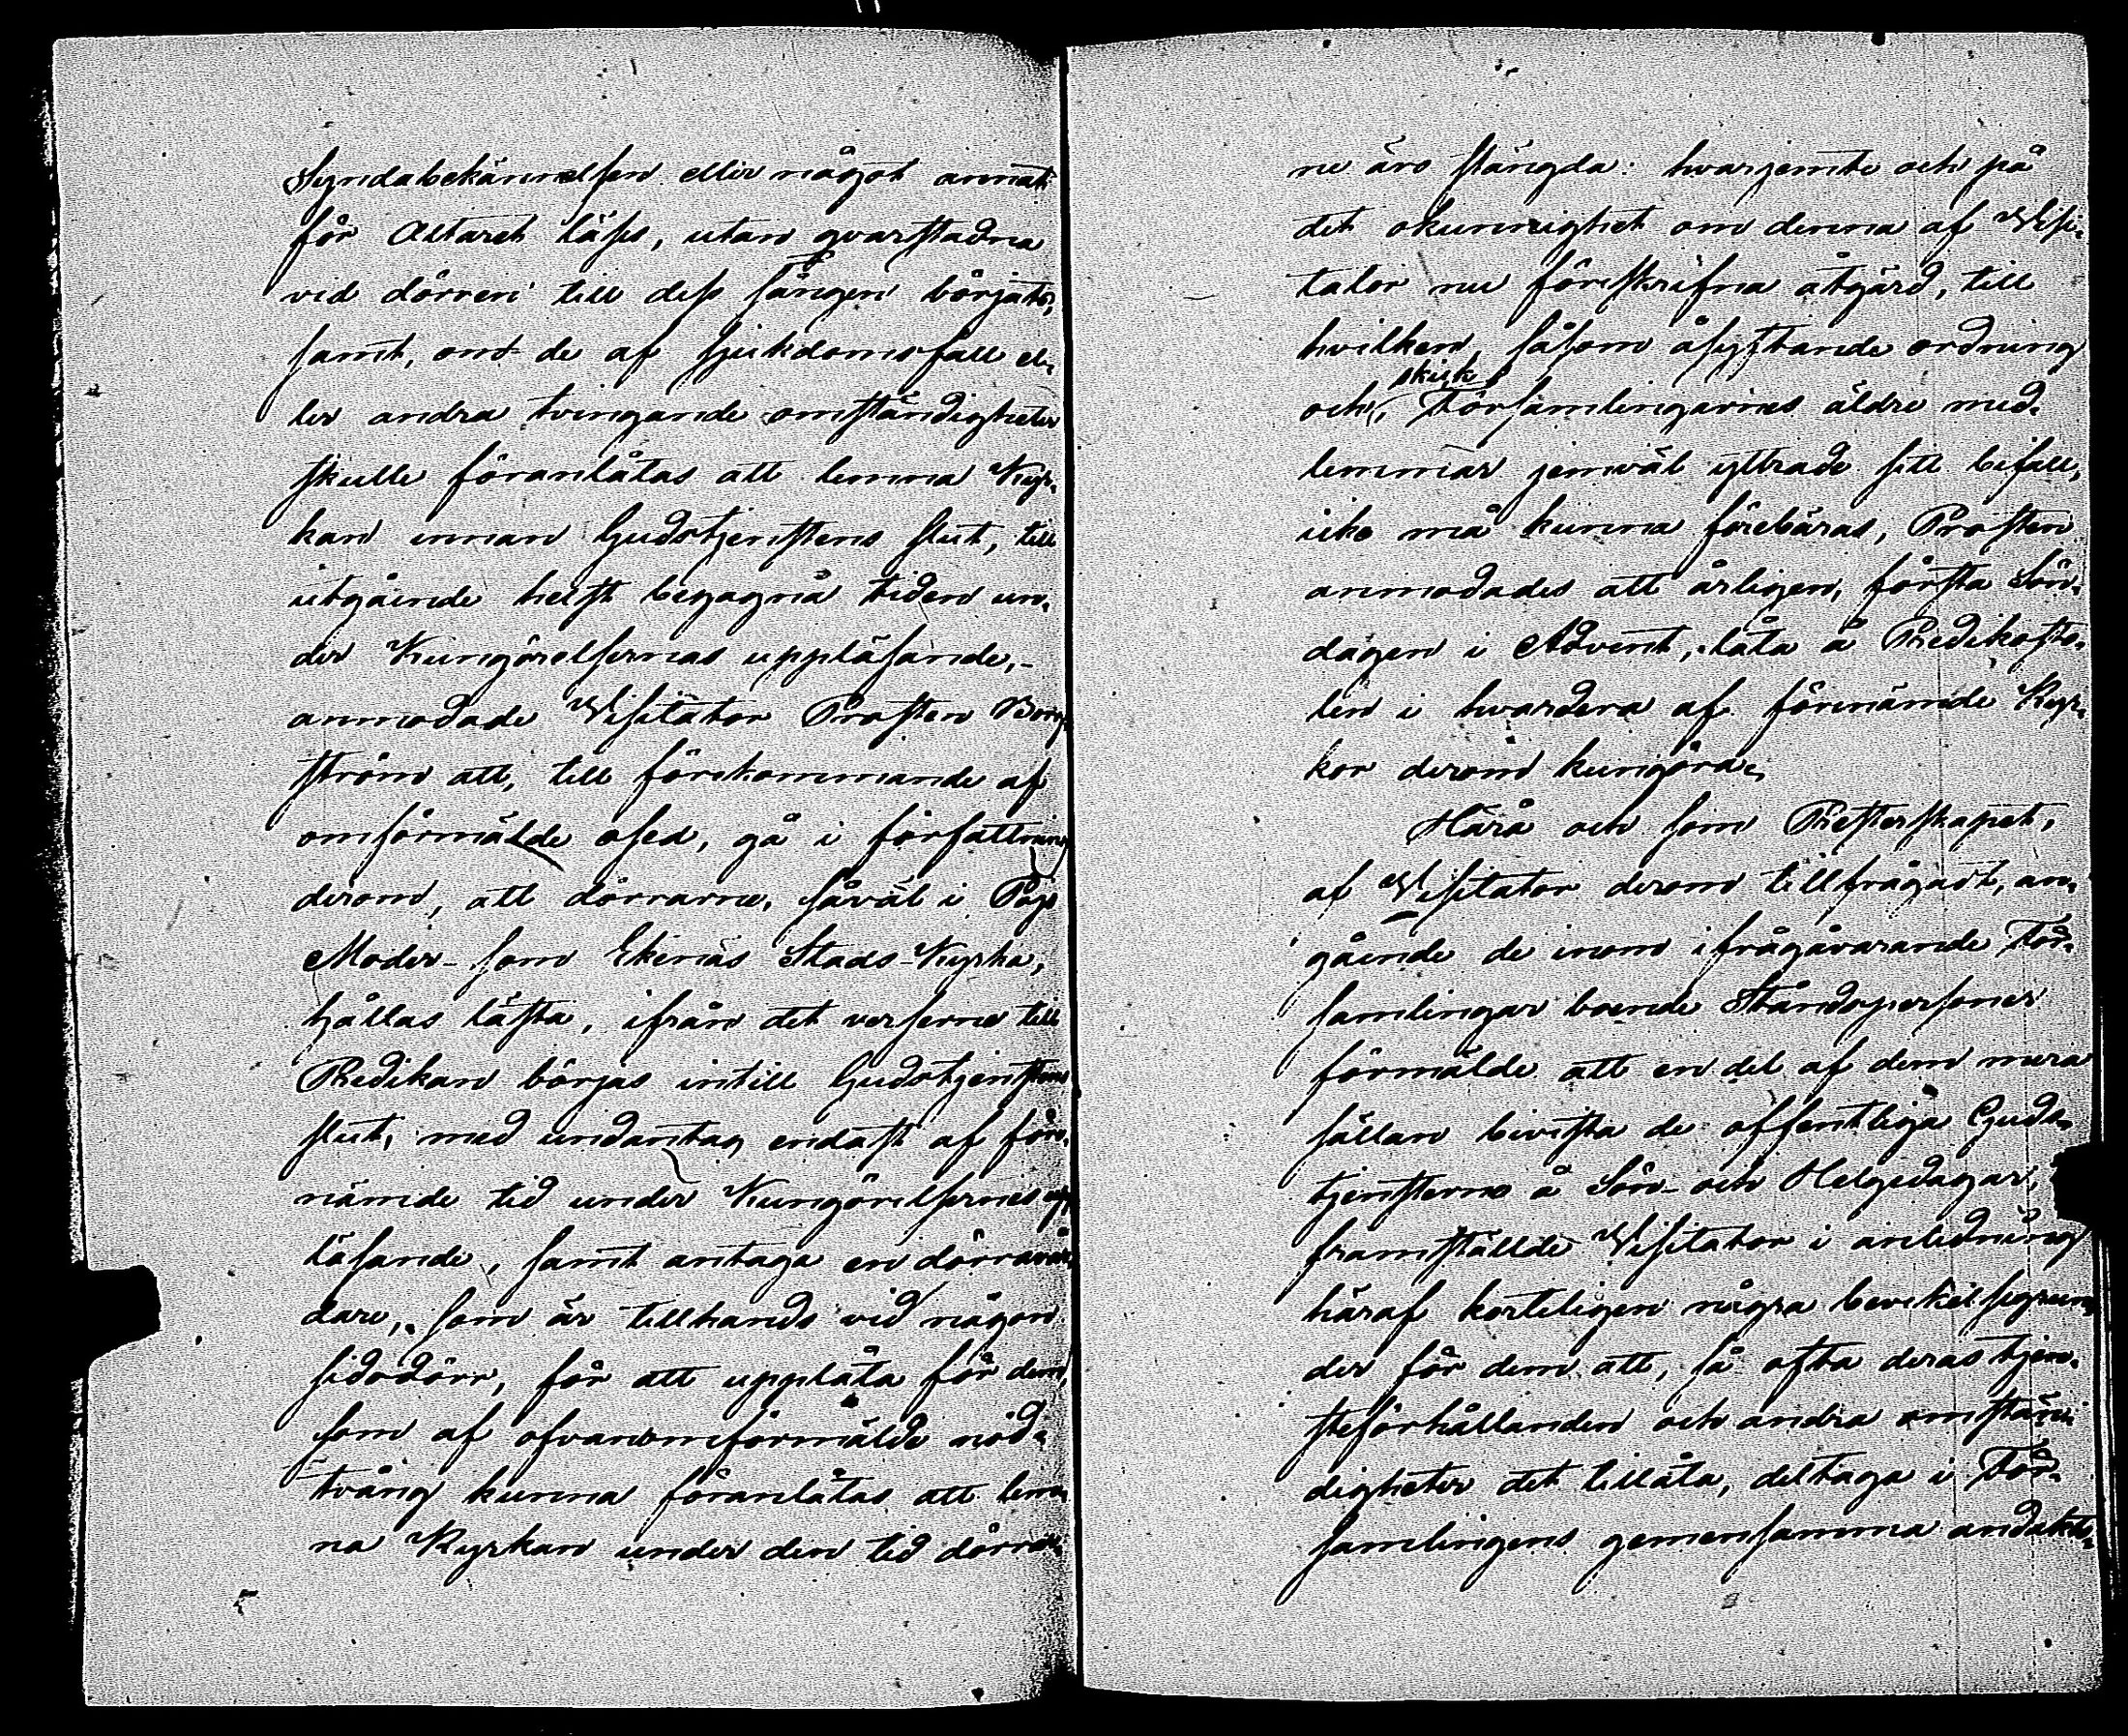 Syndabekännelsen eller något annat
för Altaret läses, utan qvarstadna
vid dörren till dess sången börjats,
samt, om de af sjukdomsfall el-
ler andra tvingande omständigheter
skulle föranlåtas att lemna Kyr-
kan innan Gudstjenstens slut, till
utgående helst begagna tiden un-
der Kungörelsernas uppläsande,-
anmodade Visitator Prosten Borg-
ström att, till förekommande af
omförmälde osed, gå i författning
derom, att dörrarne, såväl i Pojo
Moder- som Ekenäs Stads-Kyrka,
hållas låsta, ifrån det verserne till
Predikan börjas intill Gudstjenstens
slut, med undantag endast af för-
nämde tid under Kungörelsernes upp-
läsande, samt antaga en dörravak-
dare, som är tillhands vid någon
sidodörr, för att upplåta för dem,
som af ofvanomförmälde nöd-
tvång kunna föranlåtas att lem-
na Kyrkan under den tid dörrar-
ne äro stängda: hvarjemte och på
det okunnighet om denna af Visi-
tator nu föreskrifna åtgärd, till
hvilken, såsom åsyftande ordning
och skick, Församlingarnes äldre med-
lemmar jemväl yttrade sitt bifall,
icke må kunna förebäras, Prosten
anmodades att årligen, första Sön-
dagen i Advent, låta å Predikosto-
len i hvardera af förenämde Kyr-
kor derom kungöra.
Härå och som Presterskapet,
af Visitator derom tillfrågadt, an-
gående de inom ifrågavarande För-
samlingar boende Ståndspersoner
förmälde att en del af dem mera
sällan bivista de offentliga Guds-
tjensterne å Sön- och Helgedagar,
framställde Visitator i anledning
häraf korteligen några bevekelsegrun-
der för dem att, så ofta deras tjen-
steförhållanden och andra omstän-
digheter det tillåta, deltaga i För-
samlingens gemensamma andakts-